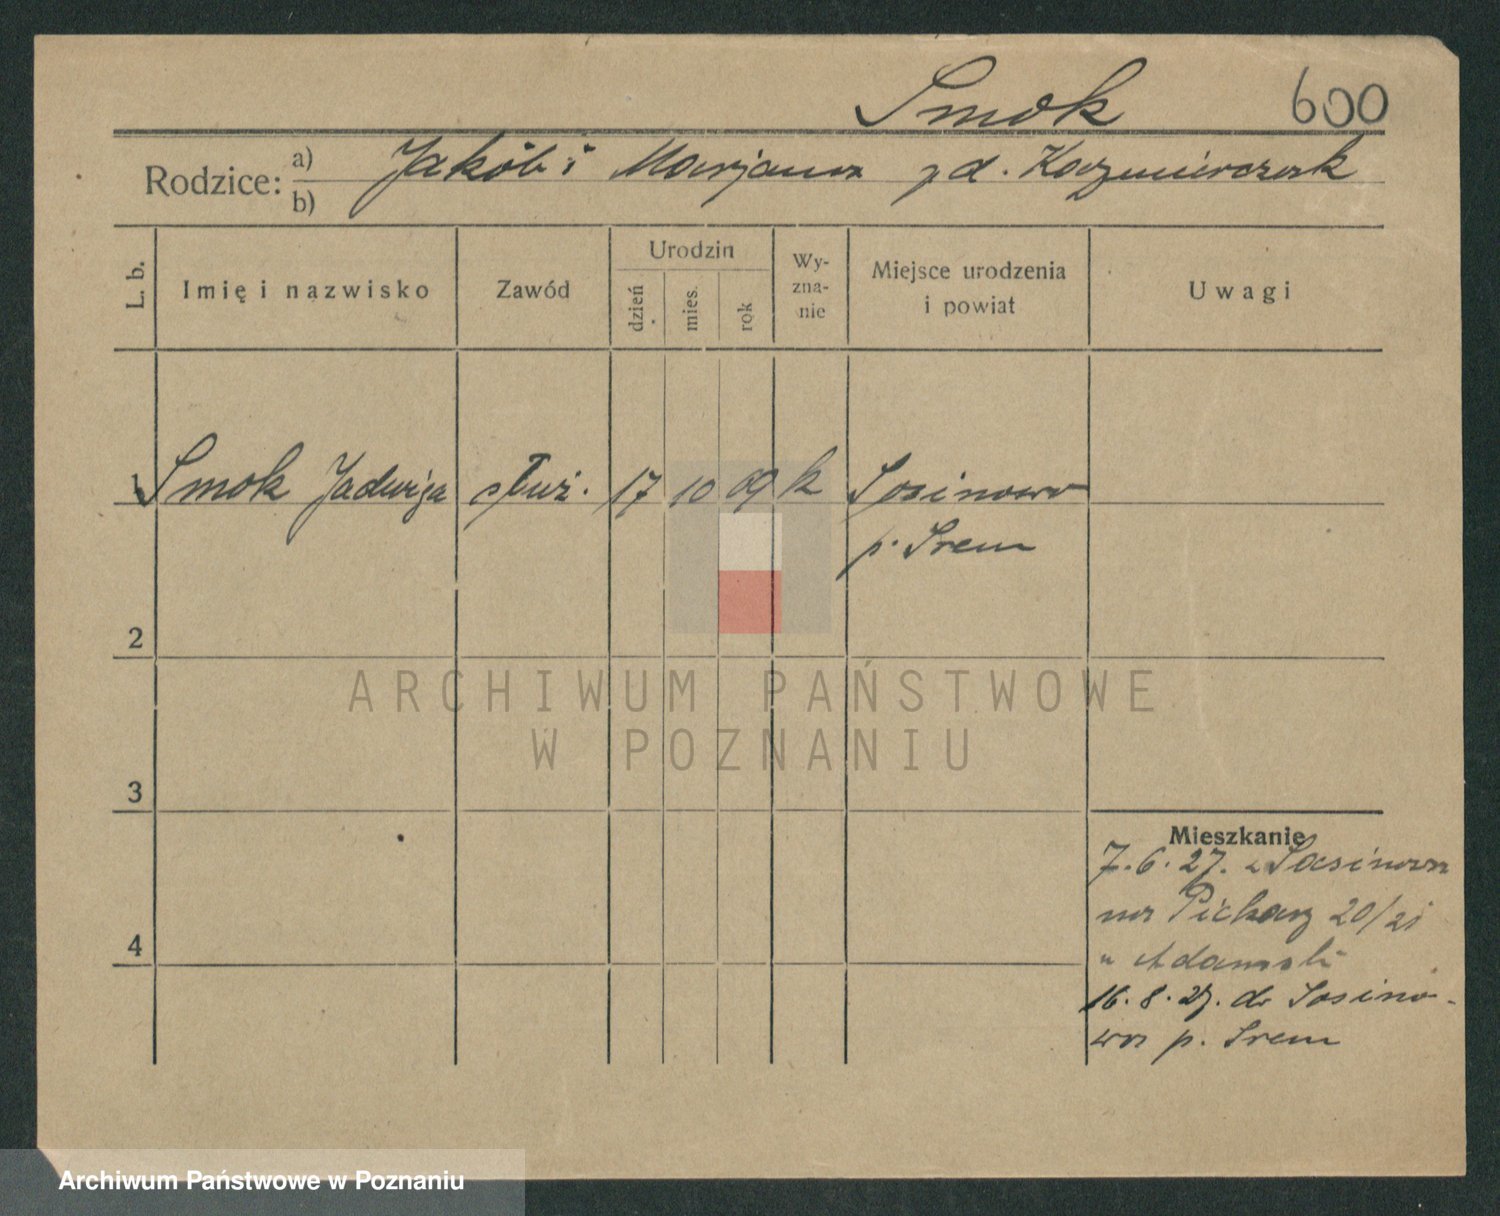 Smok 600
Rodzice: a) b) Jakób i Marjanna zd. Kaźmierczak
L. b. Imię i nazwisko Zawód Urodzin dzień mies. rok Wyznanie Miejsce urodzenia i powiat Uwagi
1 Smok Jadwiga służ. 17 10 09 k Sosinowo
p. Śrem
2
ARCHIWUM PAŃSTWOWE
W POZNANIU
3
Mieszkanie
7.6.27. z Sosinowa
na Piekary 20/21
u Adamski
4
16.8.27. do Sosino-
wa p. Śrem
Archiwum Państwowe w Poznaniu